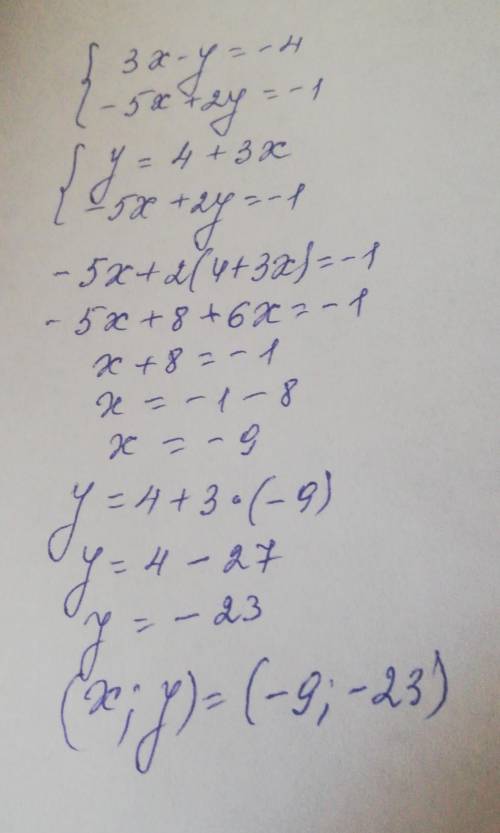 { 3x - y = -4
-5x + 2y = -1
{ y = 4 + 3x
-5x + 2y = -1
-5x + 2(4 + 3x) = -1
-5x + 8 + 6x = -1
x + 8 = -1
x = -1 - 8
x = -9
y = 4 + 3 · (-9)
y = 4 - 27
y = -23
(x; y) = (-9; -23)